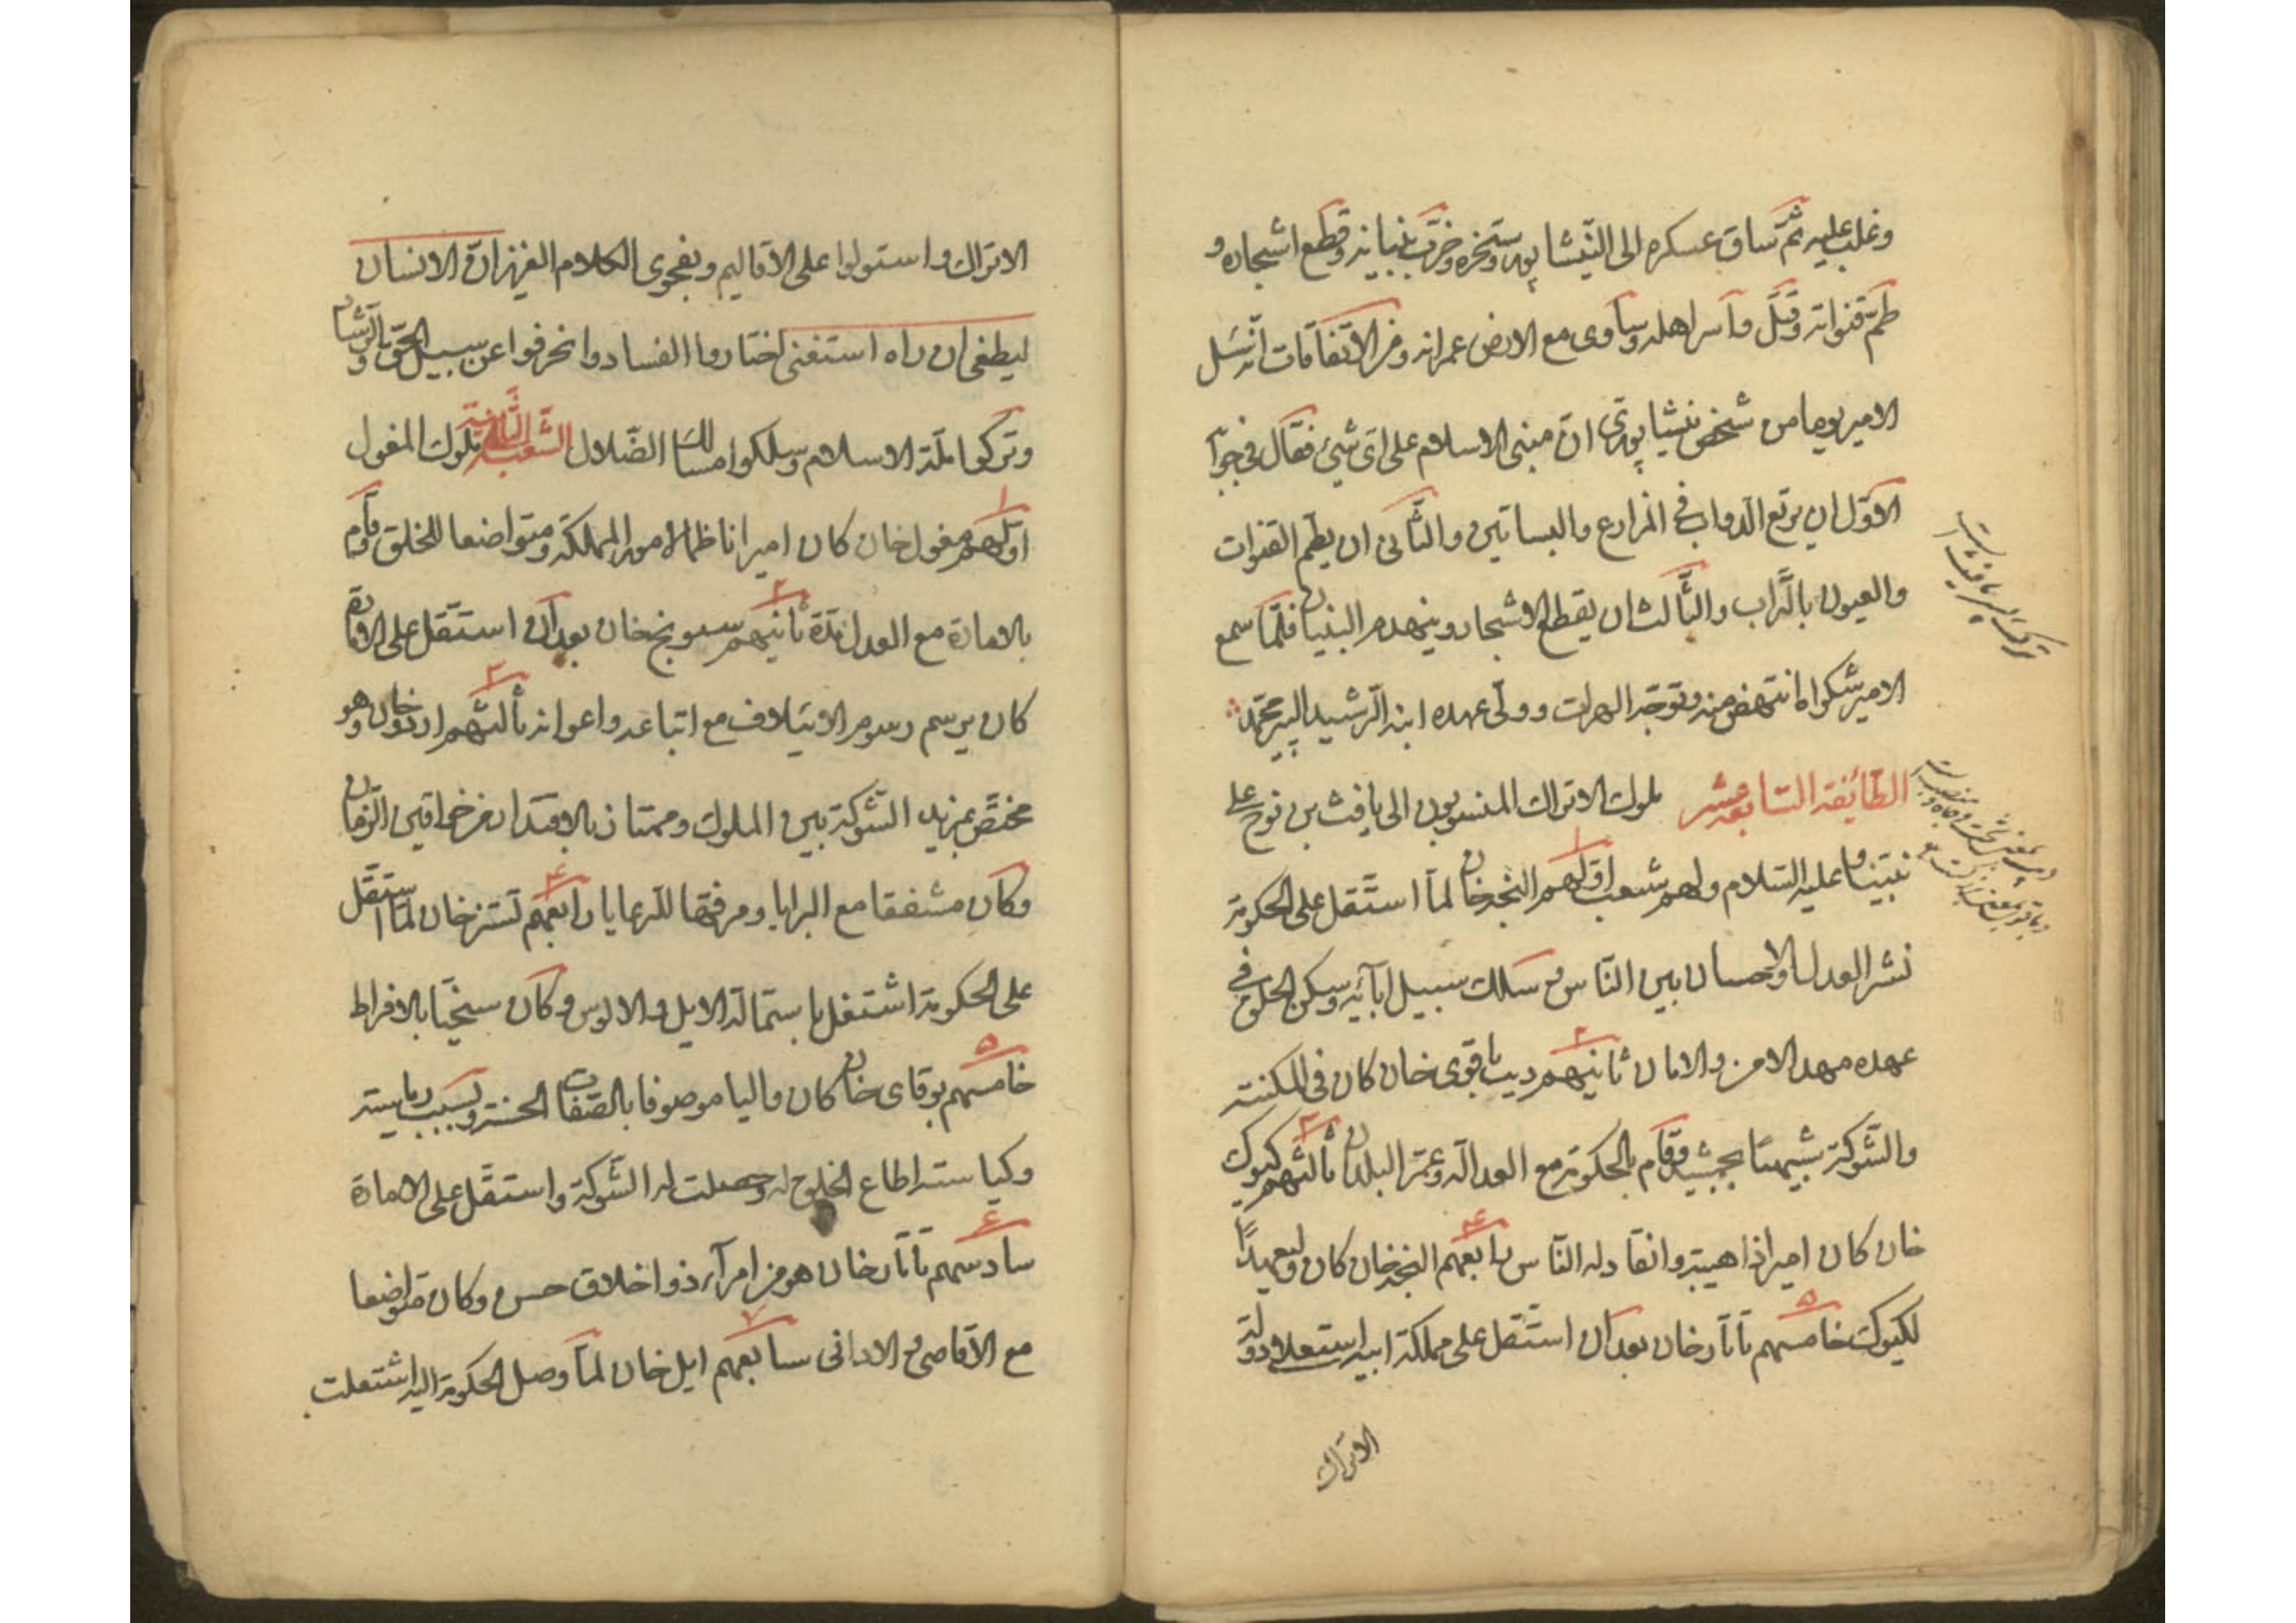 وغلب عليه ثمّ ساق عسكره الى النّيشاپور وسخّره وخرّب بنيانه وقطع اشجاره و
طمّ قنواته وقتل واسر اهله وساوى مع الارض عمرانه ومن الاتّفاقات انّه سئل
الامير يوما من شخص نيشاپورىّ انّ مبنى الاسلام على اىّ شئ فقال فى جوابه
الاوّل ان يرتع الدّواب فى المزارع والبساتين والثّانى ان يطمّ القنوات
والعيون بالتّراب والثّالث ان يقطع الاشجار وينهدم البنيان فلمّا سمع
الامير شكواه انتهض منه وتوجّه الهرات وولّى عهده ابنه الرّشيد پير محمّد
الطّائفة السّابعة عشر ملوك الاتراك المنسوبون الى يافث بن نوح على
نبيّنا وعليه السّلام ولهم شعب اوّلهم النجه خان لمّا استقلّ على الحكومة
نشر العدل والاحسان بين النّاس وسلك سبيل آبائه وسكن الخلق فى
عهده مهد الامن والامان ثانيهم ديب باقوى خان كان فى المكنة
والشّوكة شبيها بجمشيد وقام بالحكومة مع العدالة وعمّر البلدان ثالثهم كيوك
خان كان اميرا ذا هيبة وانقاد له النّاس رابعهم النجه خان كان وليعهدًا
لكيوك خامسهم تاتار خان بعد ان استقلّ على مملكة ابيه استعلا دولة
الاتراك
الاتراك واستولوا على الاقاليم وبفحوى الكلام العزيز انّ الانسان
ليطغى ان راه استغنى اختاروا الفساد وانحرفوا عن سبيل الحقّ والرّشاد
وتركوا ملّة الاسلام وسلكوا مسالك الضّلال الشّعبة الثّانية ملوك المغول
اوّلهم مغول خان كان اميرا ناظما لامور المملكة ومتواضعا للخلق وقام
بالامارة مع العدل مدّة ثانيهم سونج خان بعد ان استقلّ على الامارة
كان يرسم رسوم الايتلاف مع اتباعه واعوانه ثالثهم اردو خان وهو
مختصّ بمزيد الشّوكة بين الملوك وممتاز بالاقتدار من خواقين الزّمان
وكان مشفقا مع البرايا ومرفّها للرّعايا رابعهم تستز خان لمّا استقلّ
على الحكومة اشتغل باستمالة الايل والالوس وكان سخيّا بالافراط
خامسهم بوقاى خان كان واليا موصوفا بالصّفات الحسنة وبسبب رياسته
وكياسته اطاع الخلوج له وحصلت له الشّوكة واستقلّ على الامارة
سادسهم تاتار خان هو من امرآء ذو اخلاق حسن وكان متواضعا
مع الاقاصى والادانى سابعهم ايل خان لمّا وصل الحكومة اليه اشتعلت